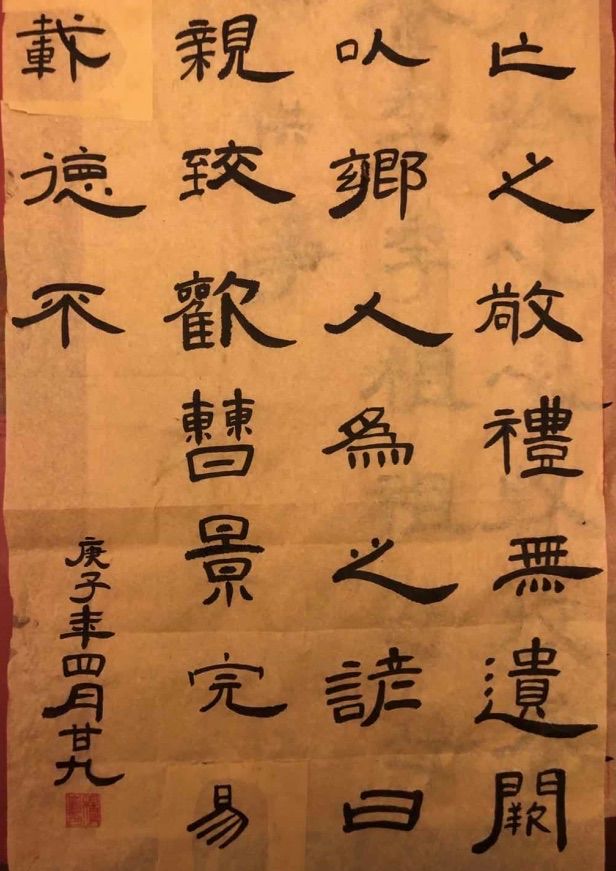 亡之敬禮無遺闕
以鄉人爲之諺曰
親致歡曹景完易
載德不
庚子年四月廿九